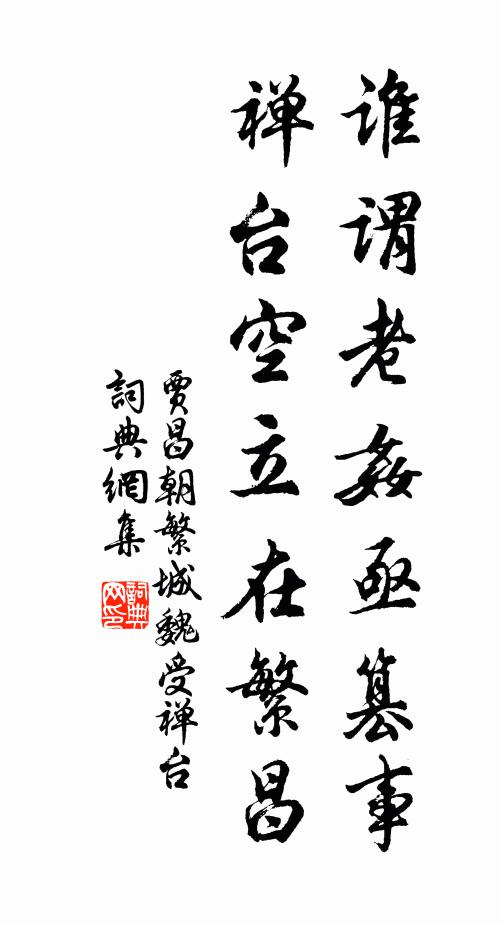 谁谓老姦亟篡事
禅台空立在繁昌
賈昌朝繁城魏受禅台
詞典網集
詞典网印